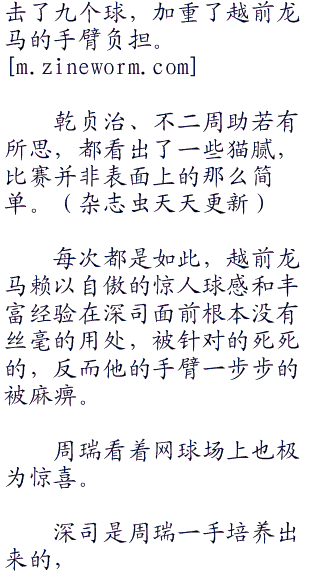 击了九个球，加重了越前龙
马的手臂负担。
[m.zineworm.com]
乾贞治、不二周助若有
所思，都看出了一些猫腻，
比赛并非表面上的那么简
单。（杂志虫天天更新）
每次都是如此，越前龙
马赖以自傲的惊人球感和丰
富经验在深司面前根本没有
丝毫的用处，被针对的死死
的，反而他的手臂一步步的
被麻痹。
周瑞看着网球场上也极
为惊喜。
深司是周瑞一手培养出
来的，